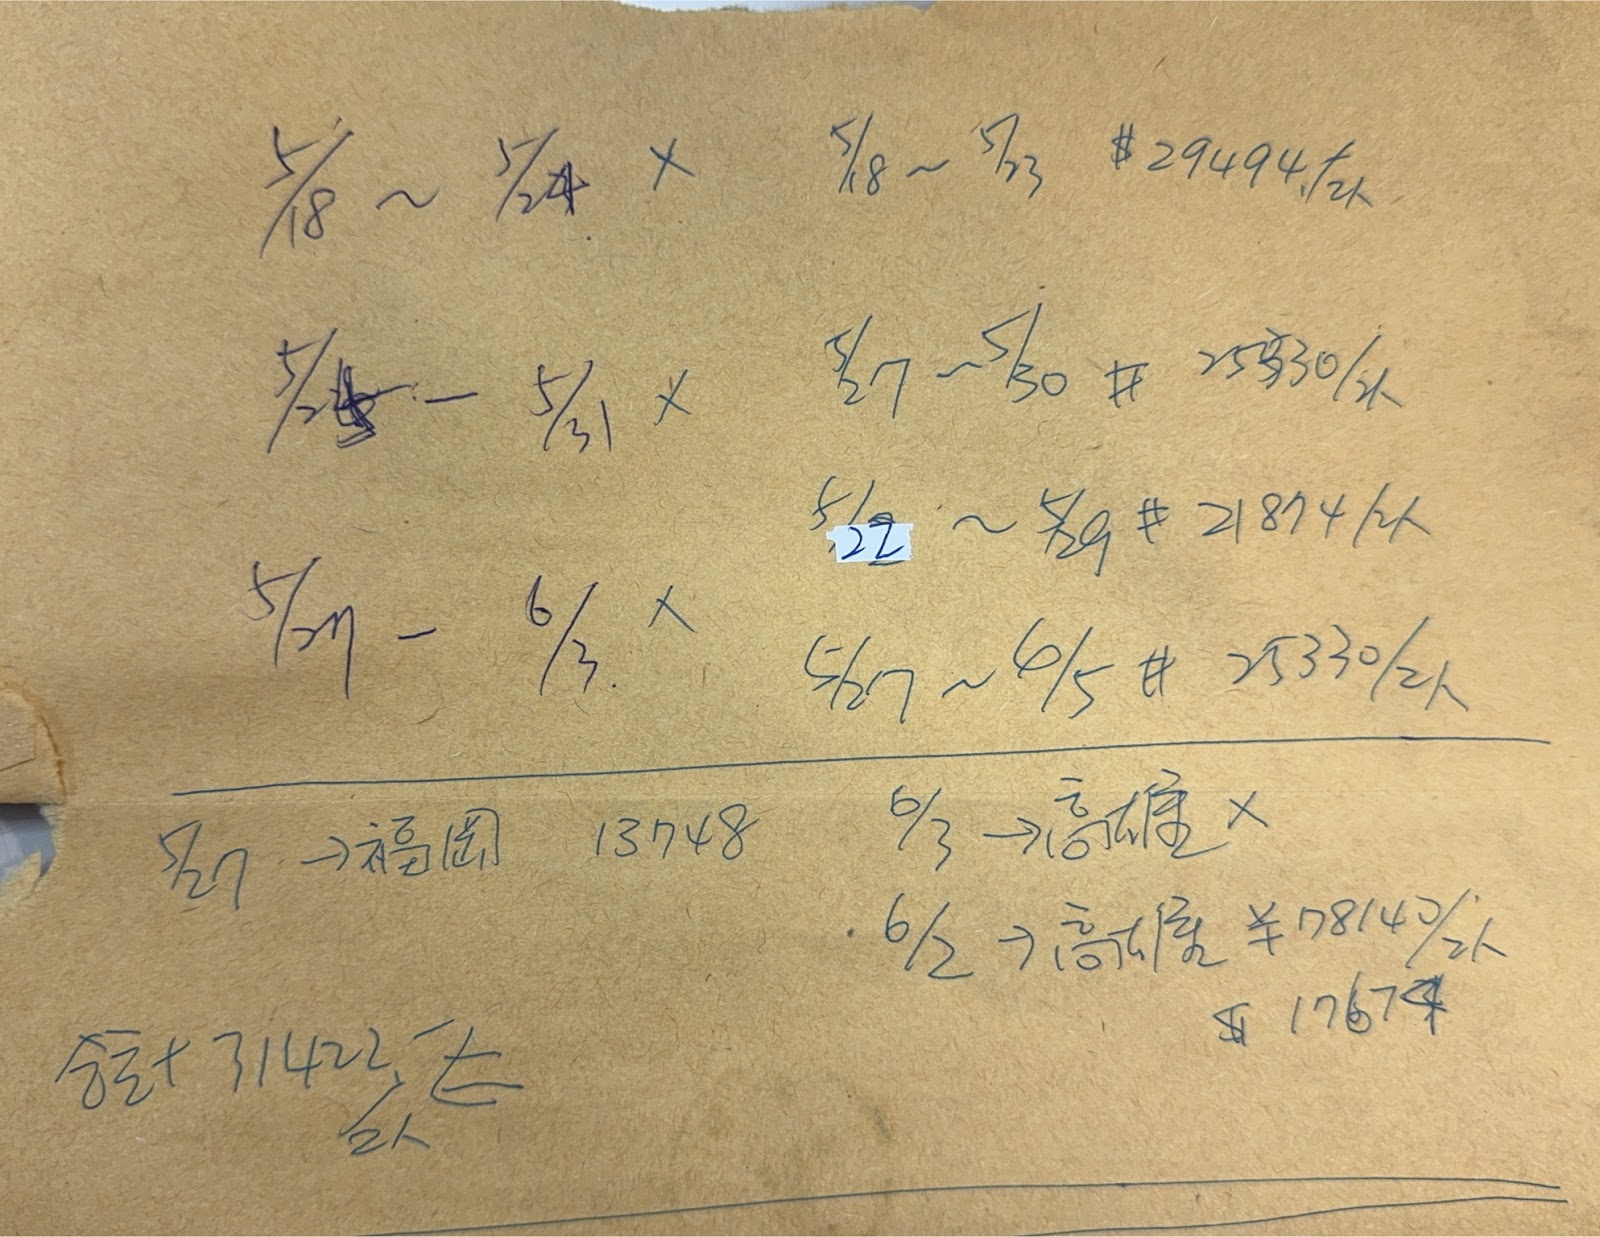 5/18 ~ 5/24 X
5/18 ~ 5/23 $29494./2人
5/25 - 5/31 X
5/27 ~ 5/30 # 25330/2人
5/22 ~ 5/29 # 21874/2人
5/27 - 6/3 X
5/27 ~ 6/5 # 25330/2人
5/27 → 福岡 13748
6/3 → 高雄 X
6/2 → 高雄 ¥78140/2人
$ 17674
合計 31422
/2人